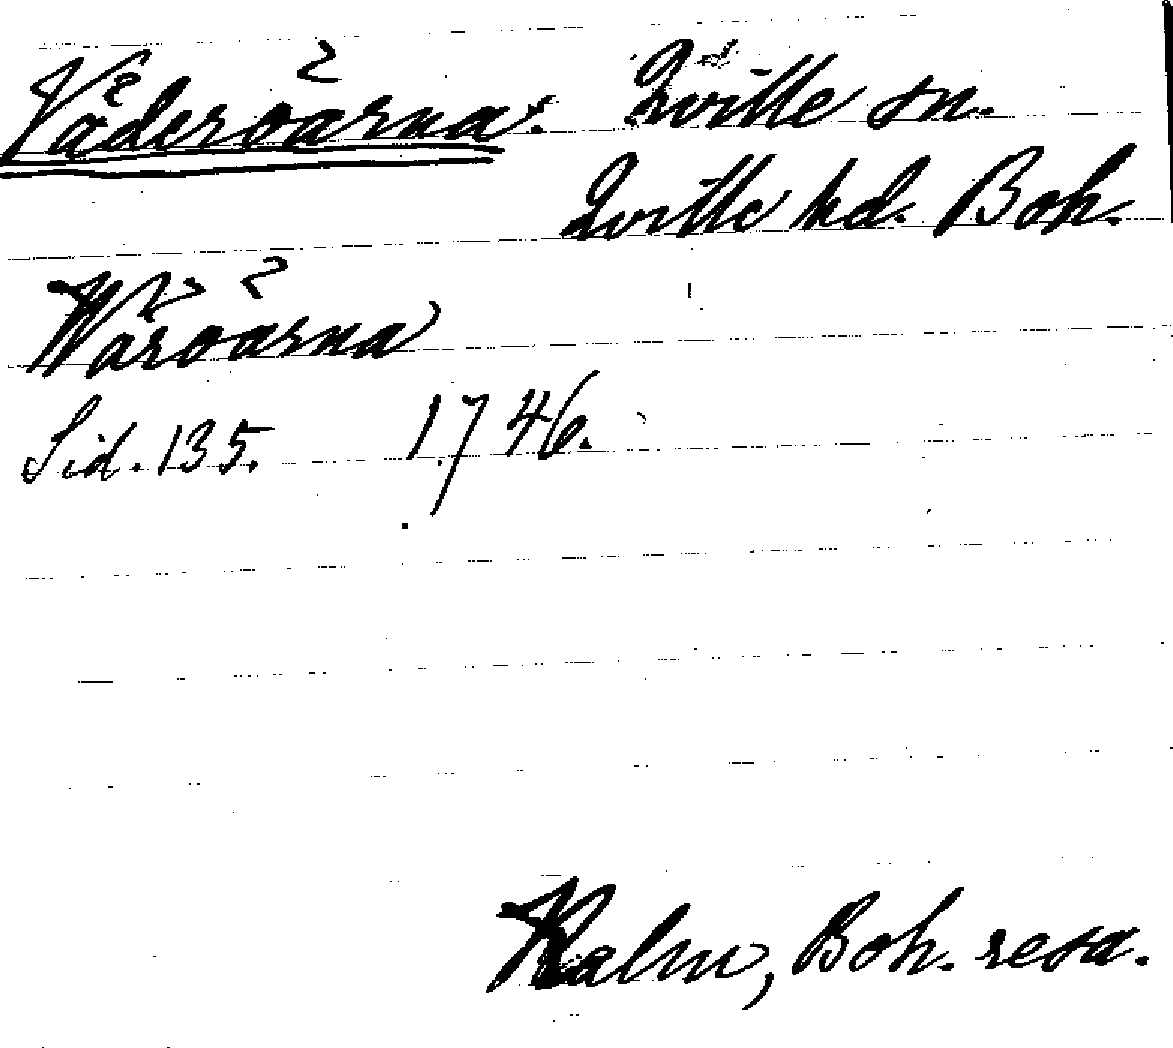 Väderöarna. Qville sn.
Qville hd. Boh.
Wäröarna
Sid. 135. 1746.
Kalm, Boh. resa.